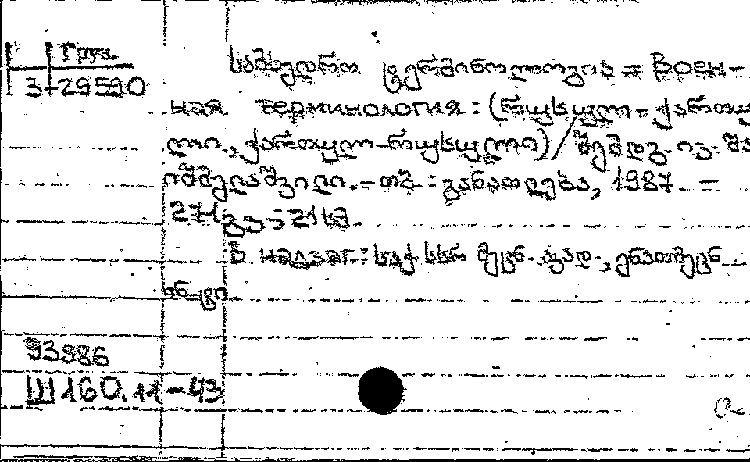 Груз.
3-29590
სამხედრო ტერმინოლოგია = Воен-
ная терминология: (რუსულ-ქართუ
ლი., ქართულ-რუსული)/შემდგ. ივ. შა
იშმელაშვილი.-თბ.: განათლება, 1987. -
271 გვ.; 21სმ.
В надзаг.: საქ. სსრ მეცნ. აკად., ენათმეცნ.
ინ-ტი
93986
Ш160.11-43